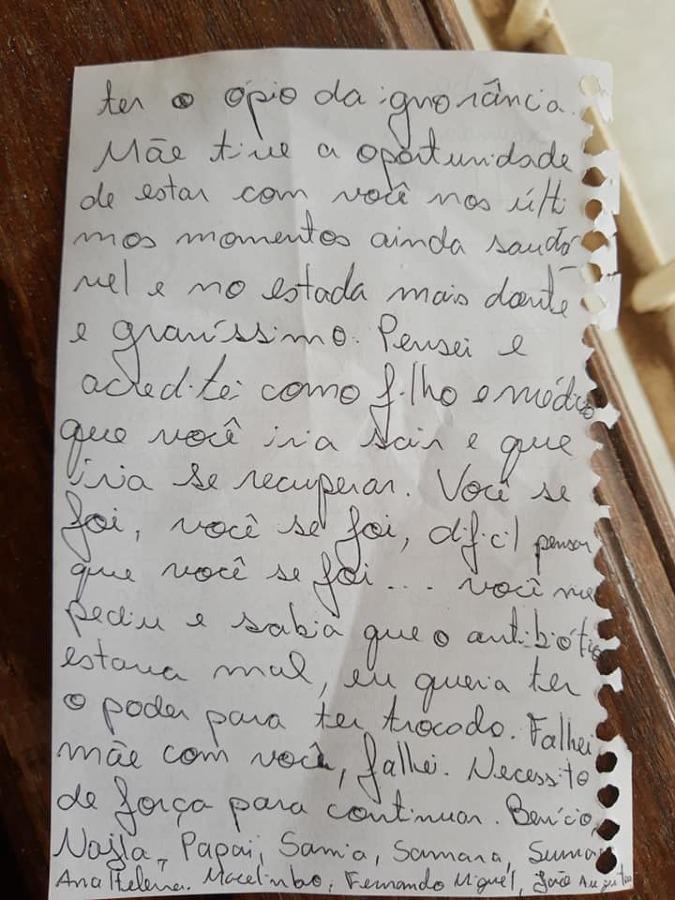 ter o ópio da ignorância.
Mãe tive a oportunidade
de estar com você nos últi
mos momentos ainda saudá
vel e no estada mais doente
e gravíssimo. Pensei e
acreditei como filho e médico
que você iria sair e que
iria se recuperar. Você se
foi, você se foi, difícil pensar
que você se foi... você me
pediu e sabia que o antibiótico
estava mal, eu queria ter
o poder para ter trocado. Falhei
mãe com você, falhei. Necessito
de força para continuar. Benício,
Najla, Papai, Samia, Samara, Sumara
Ana Helena. Marcelinho, Fernando Miguel, João Augusto